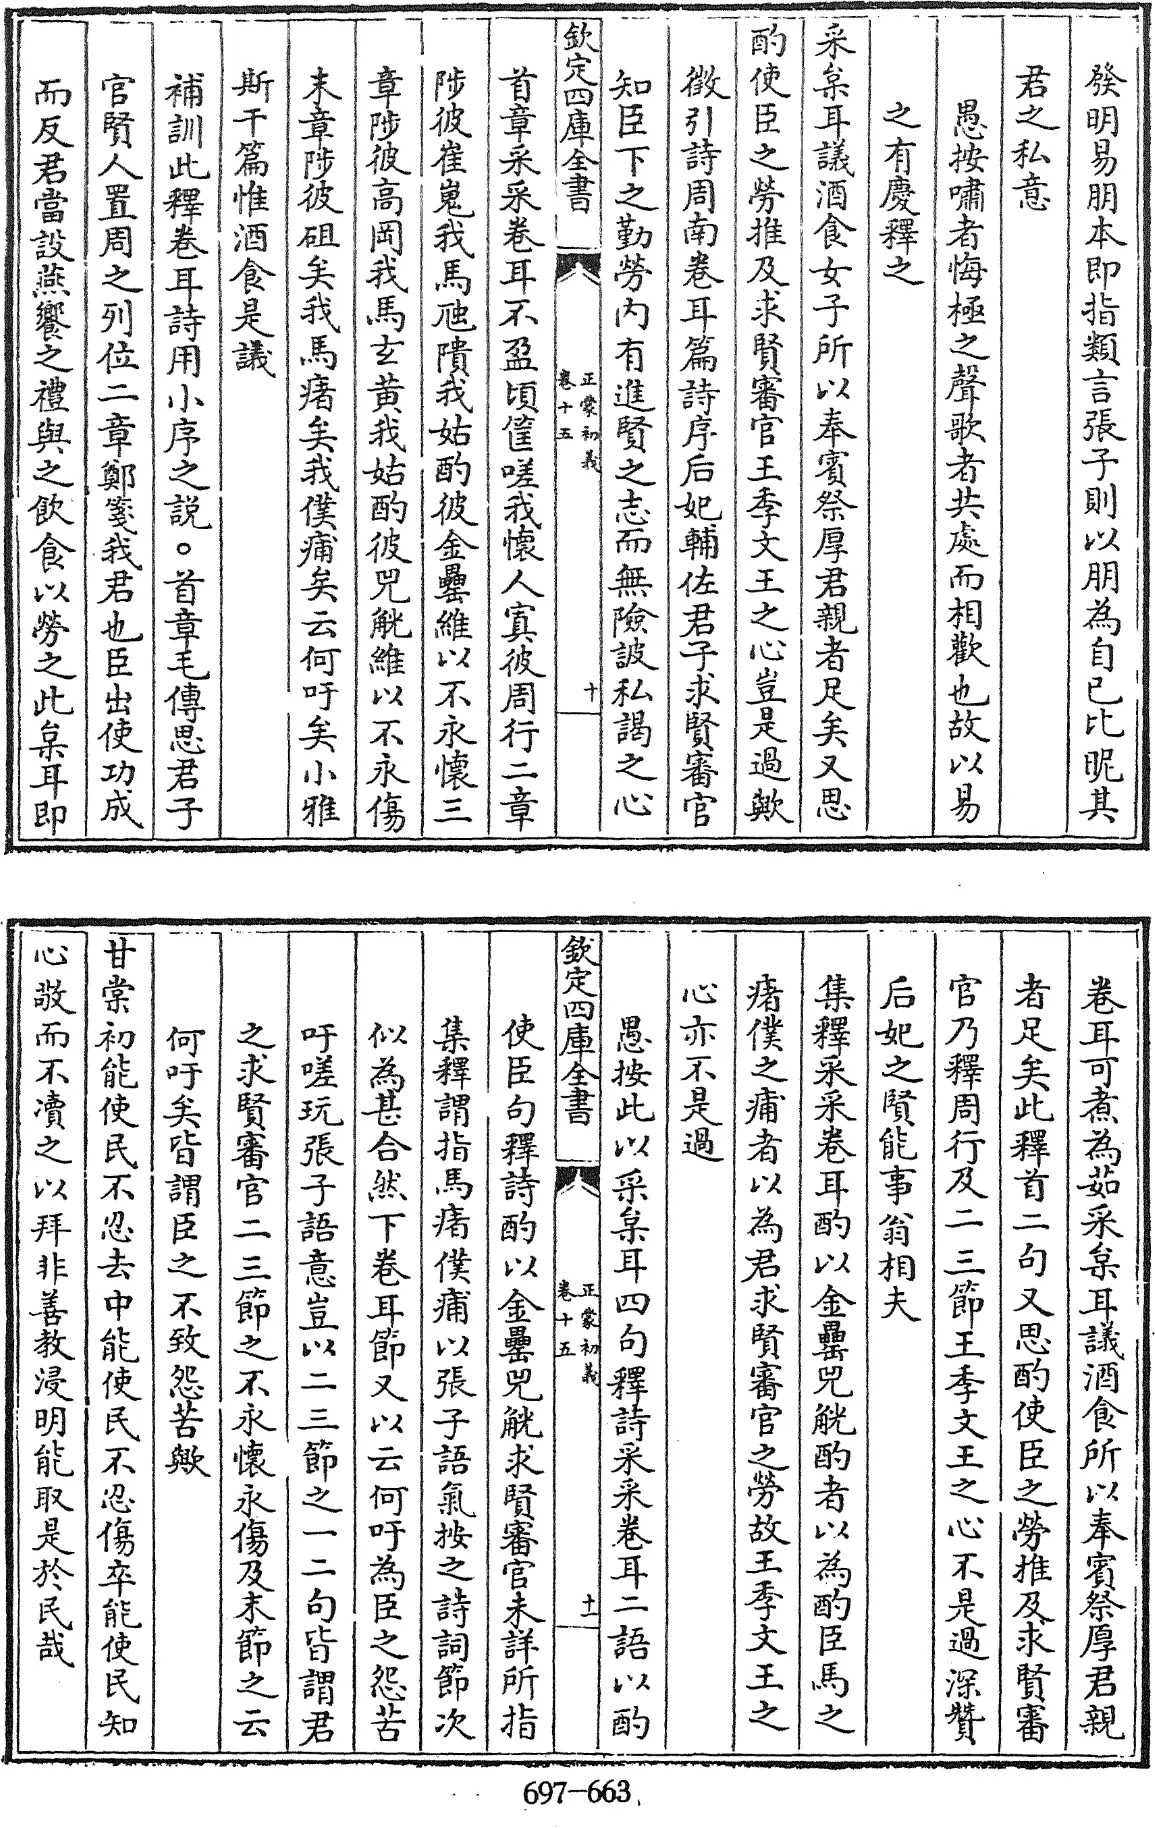 發明易朋本即指類言張子則以朋為自己比昵其
君之私意
愚按嘯者悔極之聲歌者共處而相歡也故以易
之有慶釋之
采枲耳議酒食女子所以奉賓祭厚君親者足矣又思
酌使臣之勞推及求賢審官王季文王之心豈是過歟
徵引詩周南卷耳篇詩序后妃輔佐君子求賢審官
知臣下之勤勞內有進賢之志而無險詖私謁之心
欽定四庫全書
正蒙初義
卷十五
十
首章采采卷耳不盈頃筐嗟我懷人寘彼周行二章
陟彼崔嵬我馬虺隤我姑酌彼金罍維以不永懷三
章陟彼高岡我馬玄黃我姑酌彼兕觥維以不永傷
末章陟彼砠矣我馬瘏矣我僕痡矣云何吁矣小雅
斯干篇惟酒食是議
補訓此釋卷耳詩用小序之説。首章毛傳思君子
官賢人置周之列位二章鄭箋我君也臣出使功成
而反君當設燕饗之禮與之飲食以勞之此枲耳即
卷耳可煮為茹采枲耳議酒食所以奉賓祭厚君親
者足矣此釋首二句又思酌使臣之勞推及求賢審
官乃釋周行及二三節王季文王之心不是過深贊
后妃之賢能事翁相夫
集釋采采卷耳酌以金罍兕觥酌者以為酌臣馬之
瘏僕之痡者以為君求賢審官之勞故王季文王之
心亦不是過
愚按此以采枲耳四句釋詩采采卷耳二語以酌
欽定四庫全書
正蒙初義
卷十五
十一
使臣句釋詩酌以金罍兕觥求賢審官未詳所指
集釋謂指馬瘏僕痡以張子語氣按之詩詞節次
似為甚合然下卷耳節又以云何吁為臣之怨苦
吁嗟玩張子語意豈以二三節之一二句皆謂君
之求賢審官二三節之不永懷永傷及末節之云
何吁矣皆謂臣之不致怨苦歟
甘棠初能使民不忍去中能使民不忍傷卒能使民知
心敬而不瀆之以拜非善教浸明能取是於民哉
697-663